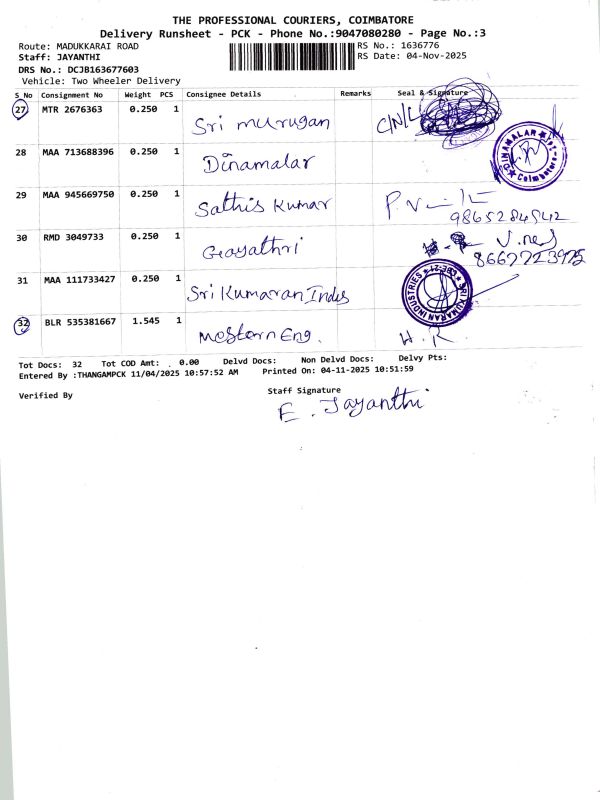 THE PROFESSIONAL COURIERS, COIMBATORE
Delivery Runsheet - PCK - Phone No.:9047080280 - Page No.:3
Route: MADUKKARAI ROAD RS No.: 1636776
Staff: JAYANTHI RS Date: 04-Nov-2025
DRS No.: DCJB163677603
Vehicle: Two Wheeler Delivery
S No Consignment No Weight PCS Consignee Details Remarks Seal & Signature
27 MTR 2676363 0.250 1 Sri murugan C/N/L
28 MAA 713688396 0.250 1 Dinamalar DINAMALAR Coimbatore
29 MAA 945669750 0.250 1 Sathis Kumar 9865284542
30 RMD 3049733 0.250 1 Gayathri 8667723975
31 MAA 111733427 0.250 1 Sri Kumaran Indus SRI KUMARAN INDUSTRIES
32 BLR 535381667 1.545 1 Western Eng. H. R
Tot Docs: 32 Tot COD Amt: . 0.00 Delvd Docs: Non Delvd Docs: Delvy Pts:
Entered By :THANGAMPCK 11/04/2025 10:57:52 AM Printed On: 04-11-2025 10:51:59
Verified By Staff Signature
E. Jayanthi